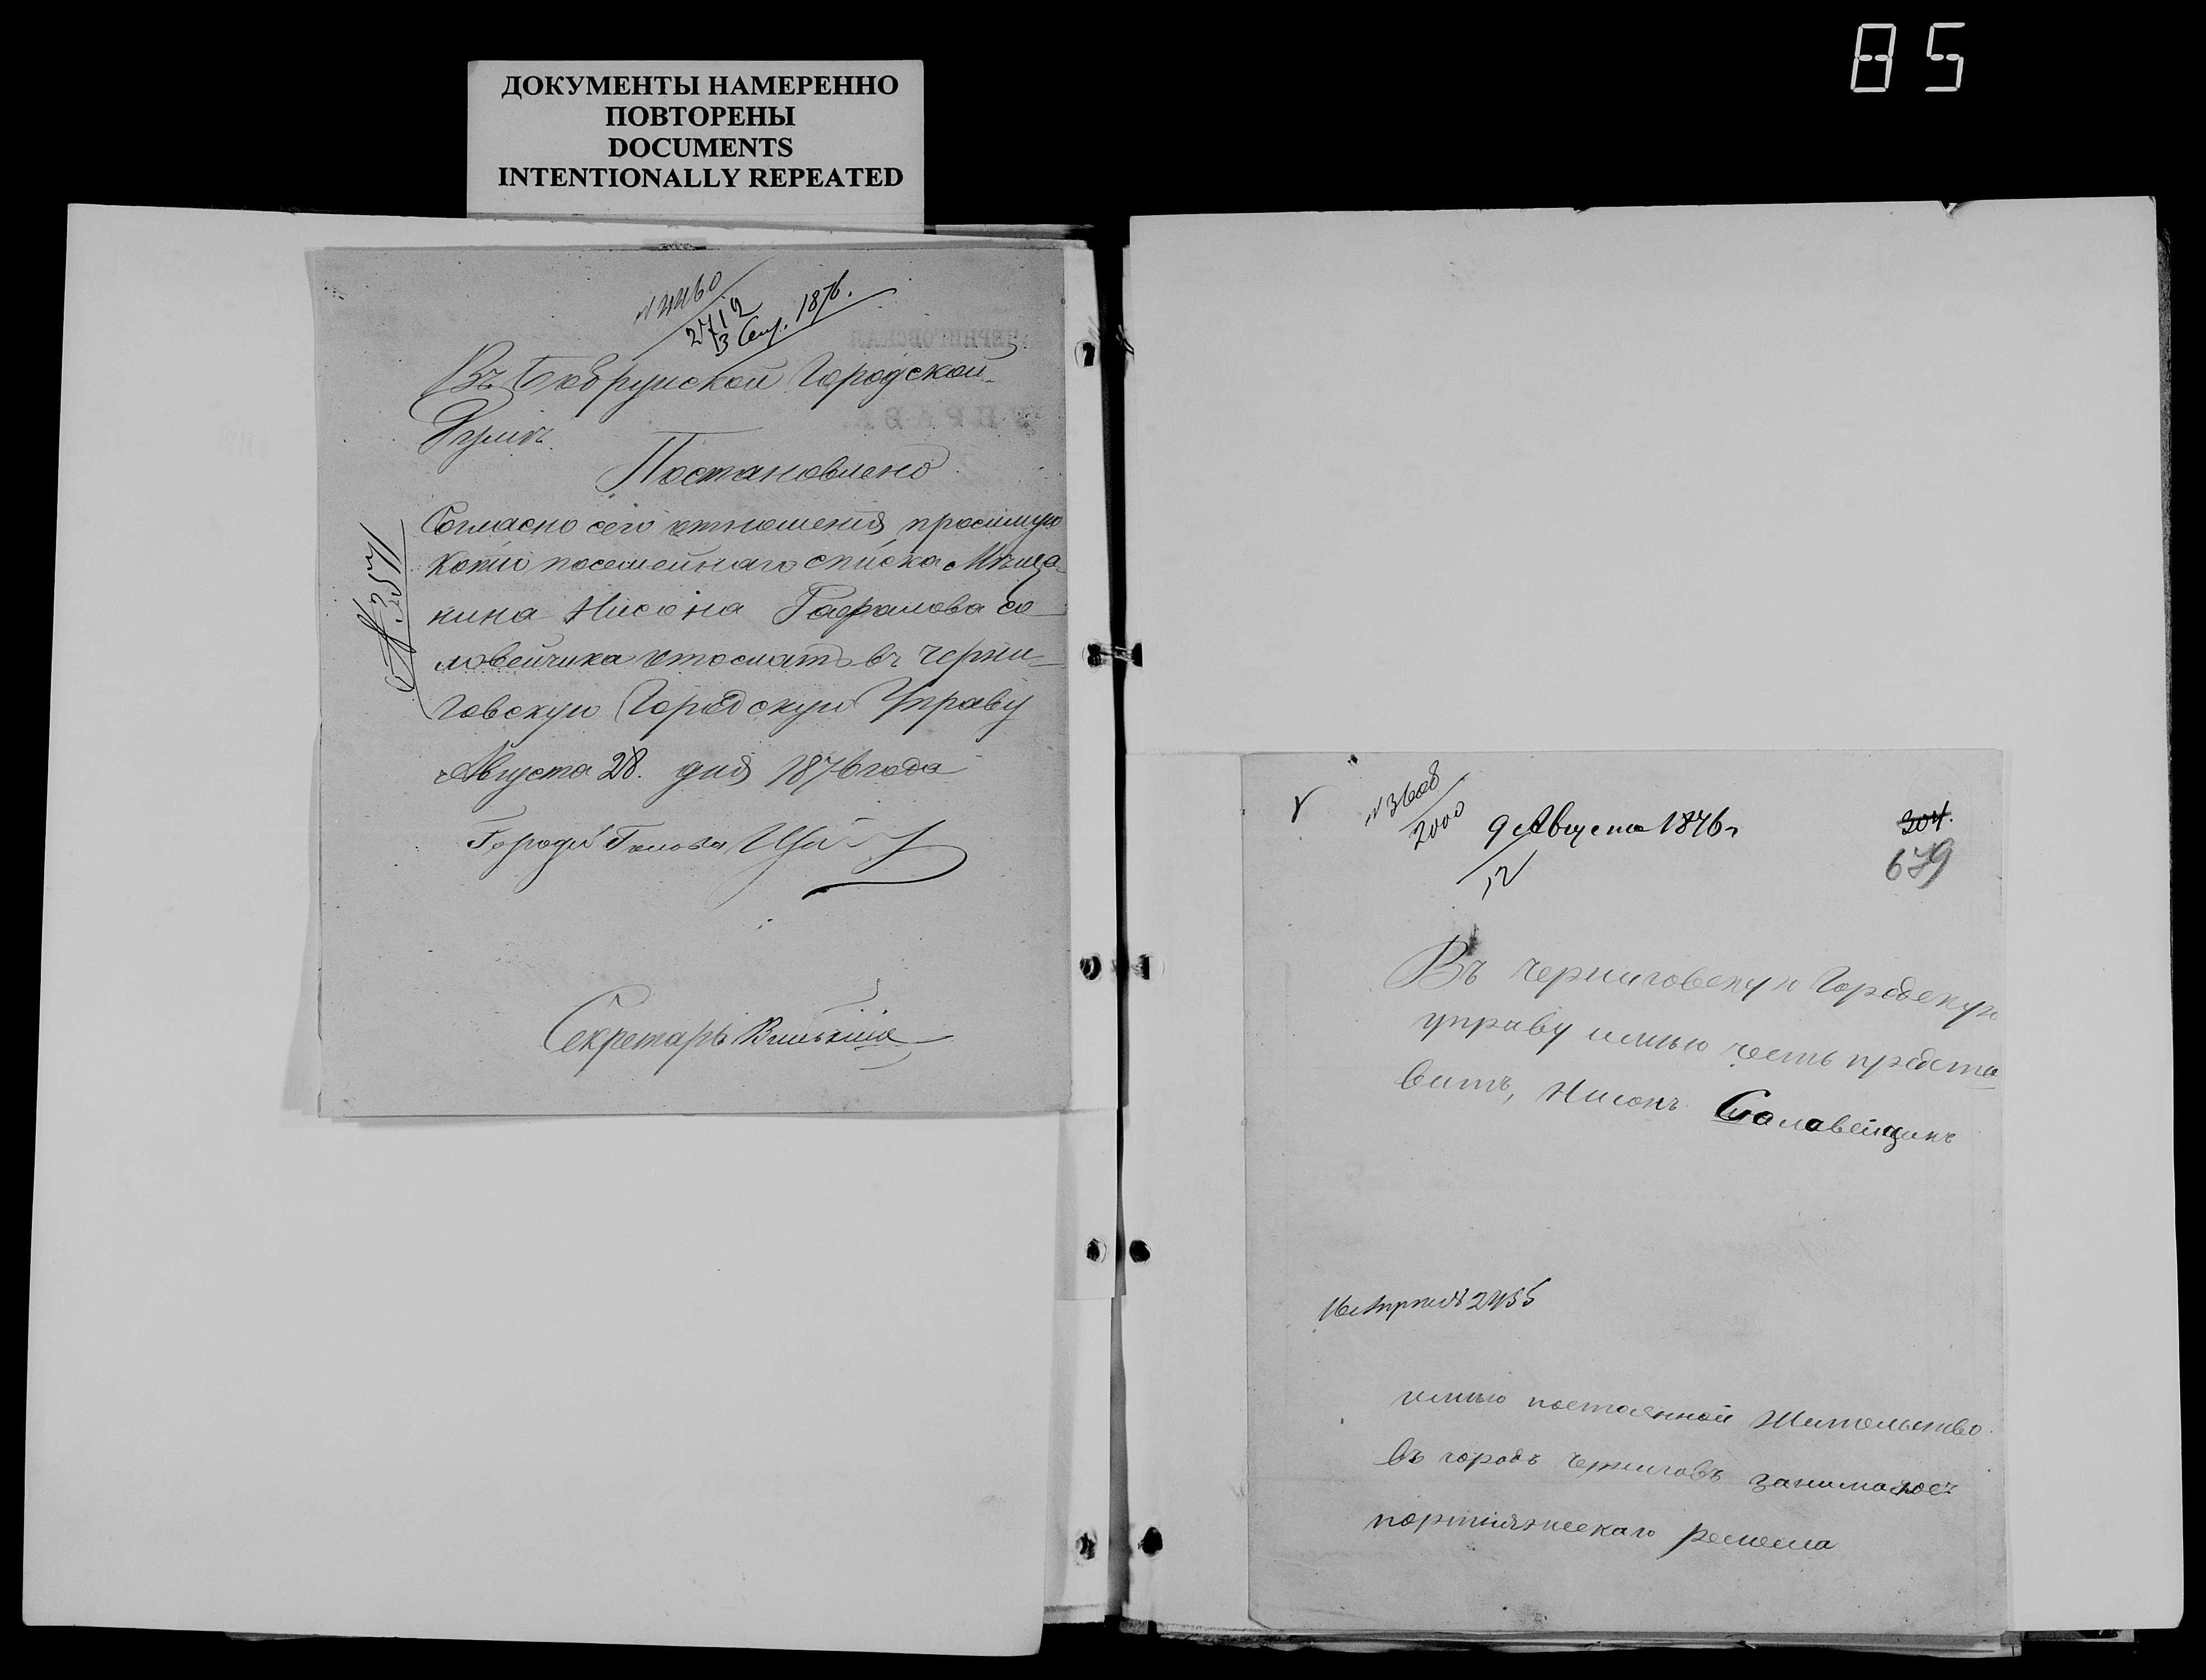 85
ДОКУМЕНТЫ НАМЕРЕННО
ПОВТОРЕНЫ
DOCUMENTS
INTENTIONALLY REPEATED
N 4460
2712
3 Сен. 1876.
Въ Бобруйской Городской
Думѣ
Постановлено
Согласно сего отношенія просимую
копію посемейнаго списка Мѣща-
нина Нисона Рафалова Со-
ловейчика отослать въ Черни-
говскую Городскую Управу
Августа 28. дня 1876 года
Городй Голова
Секретарь
N 3571
N 3608
2000
9 Августа 1876 г
12
304.
679
Въ Черниговскую Городскую
управу имѣю честь предста
вить, Нисонъ Салавейчикъ
2455
имѣю постоянной Жительство
въ городѣ Черниговѣ занимаюсъ
портняжескаго ремесла